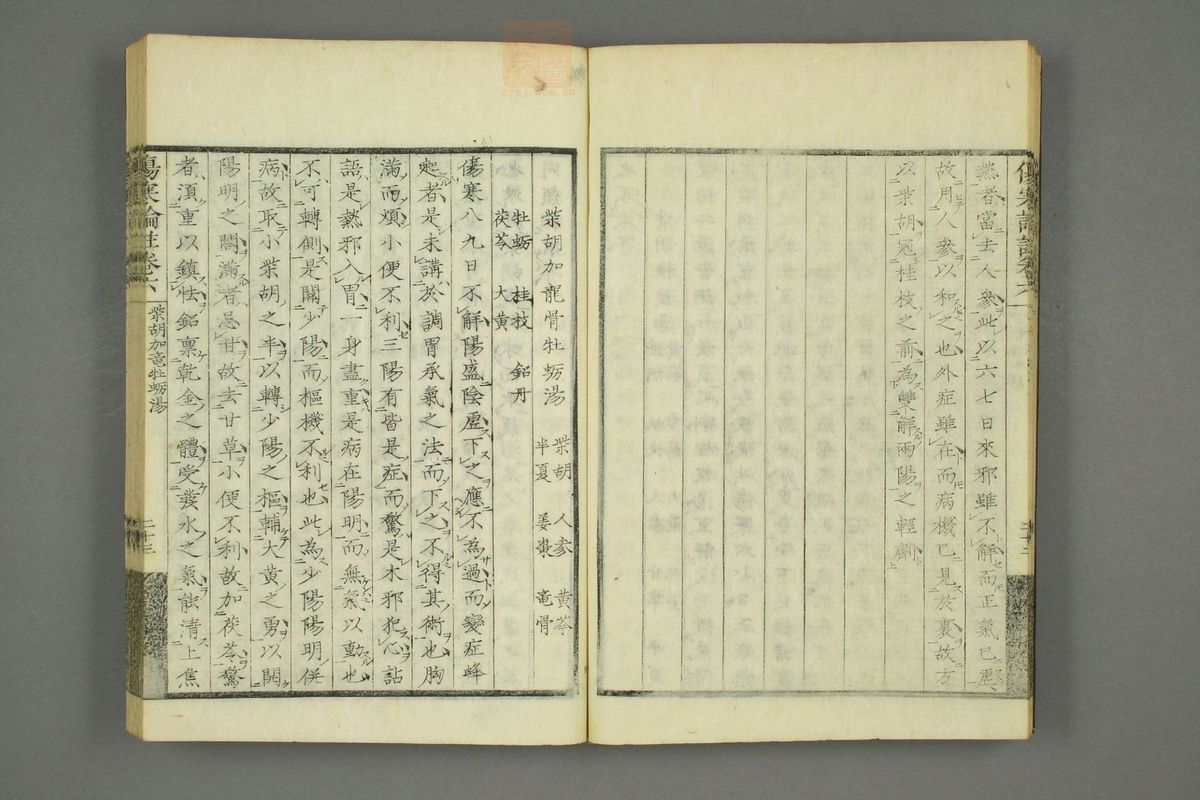 熱者當去人參此以六七日來邪雖不解而正氣已虛
故用人參以和之也外症雖在而病機已見於裏故方
以柴胡冠桂枝之前為雙解兩陽之輕劑
柴胡加龍骨牡蛎湯
柴胡 人參 黃芩
半夏 姜棗 竜骨
牡蛎 桂枝 鉛丹
茯苓 大黃
傷寒八九日不解陽盛陰虛下之應不為過而變症蜂
起者是未講於調胃承氣之法而下之不得其術也胸
滿而煩小便不利三陽有皆是症而驚是木邪犯心詀
語是熱邪入胃一身盡重是病在陽明而無氣以動也
不可轉側是關少陽而樞機不利也此為少陽陽明併
病故取小柴胡之半以轉少陽之樞輔大黃之勇以開
陽明之闔滿者忌甘故去甘草小便不利故加茯苓驚
者湏重以鎮怯鉛稟乾金之體受癸水之氣能清上焦
傷寒論註卷六
柴胡加竜牡蛎湯
二十三
zysj.com.cn